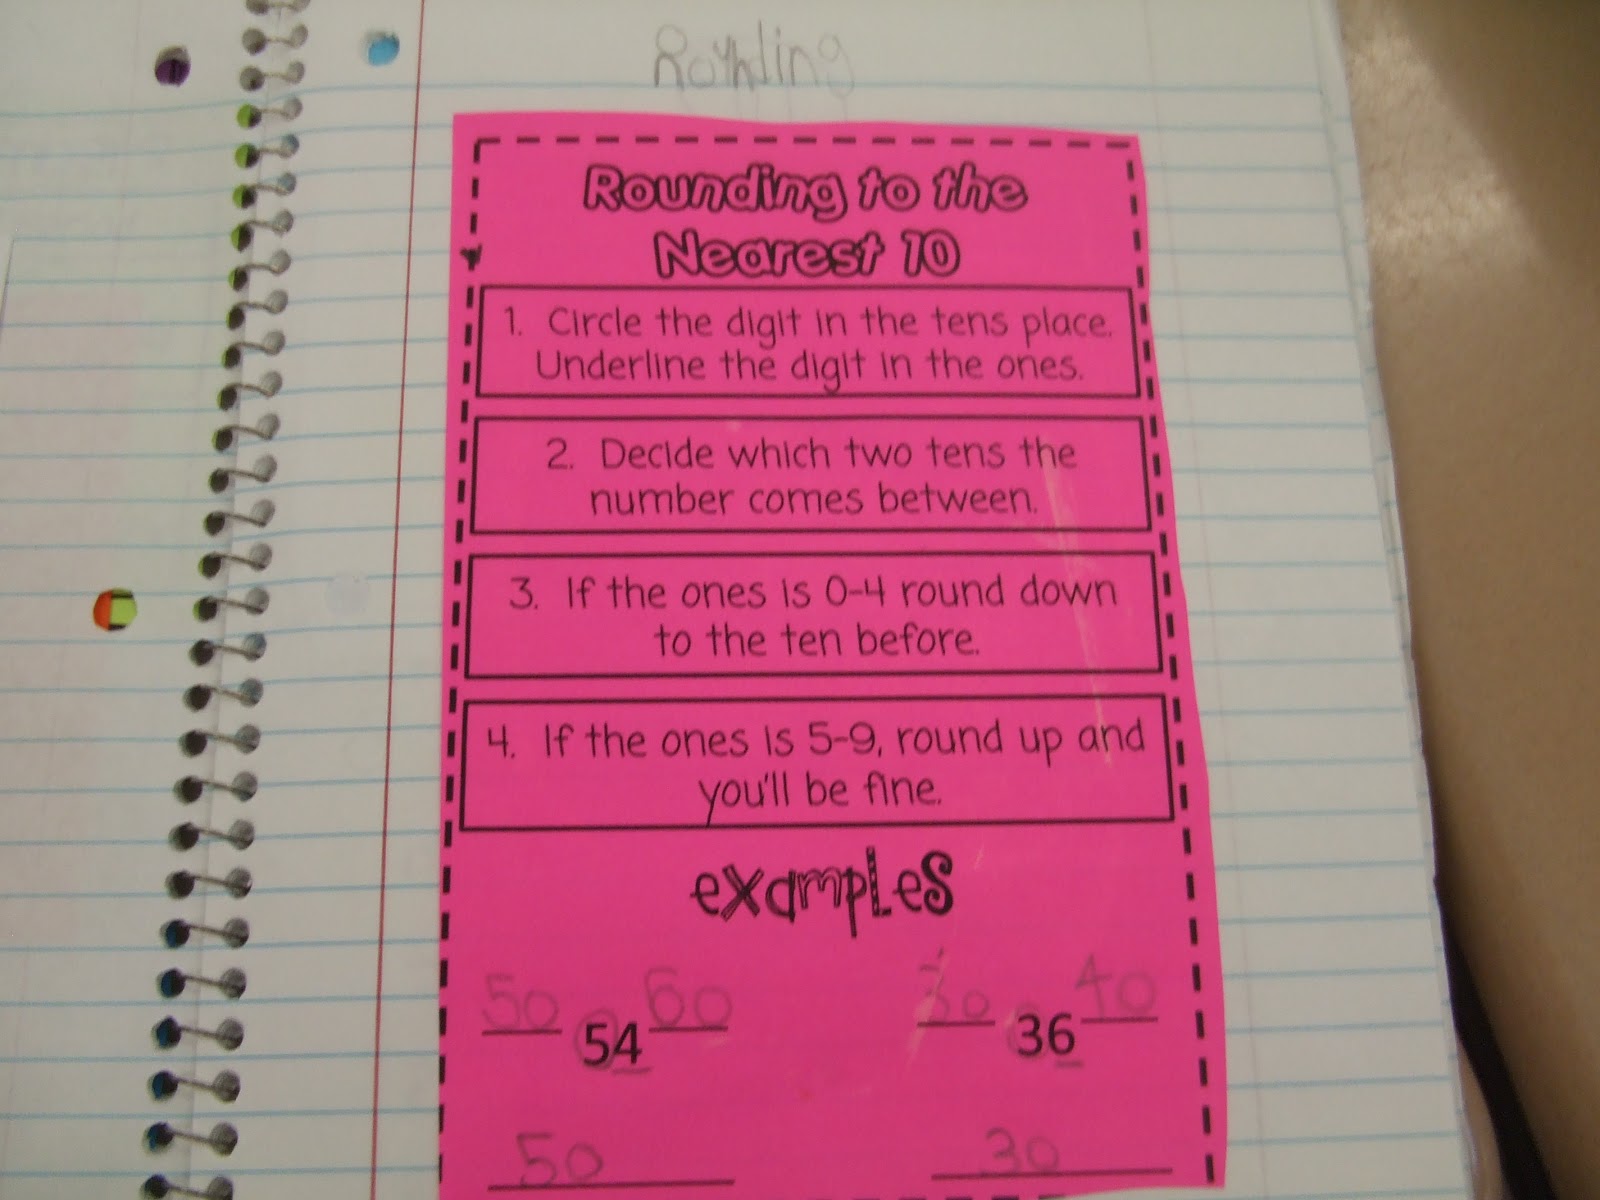 Rounding to the
Nearest 10
1. Circle the digit in the tens place.
Underline the digit in the ones.
2. Decide which two tens the
number comes between.
3. If the ones is 0-4 round down
to the ten before.
4. If the ones is 5-9, round up and
you'll be fine.
examples
50 54 60
30 36 40
50
30